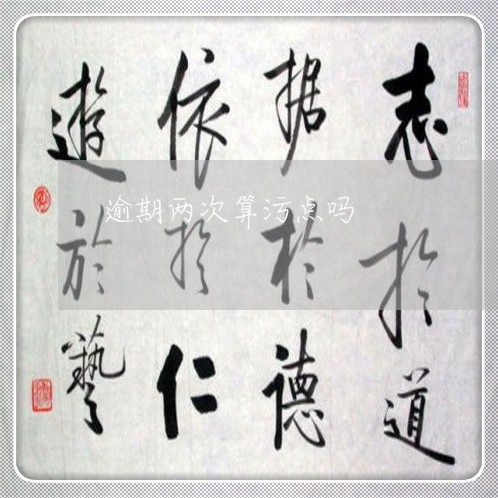 志於道
据於德
依於仁
遊於藝
逾期两次算污点吗